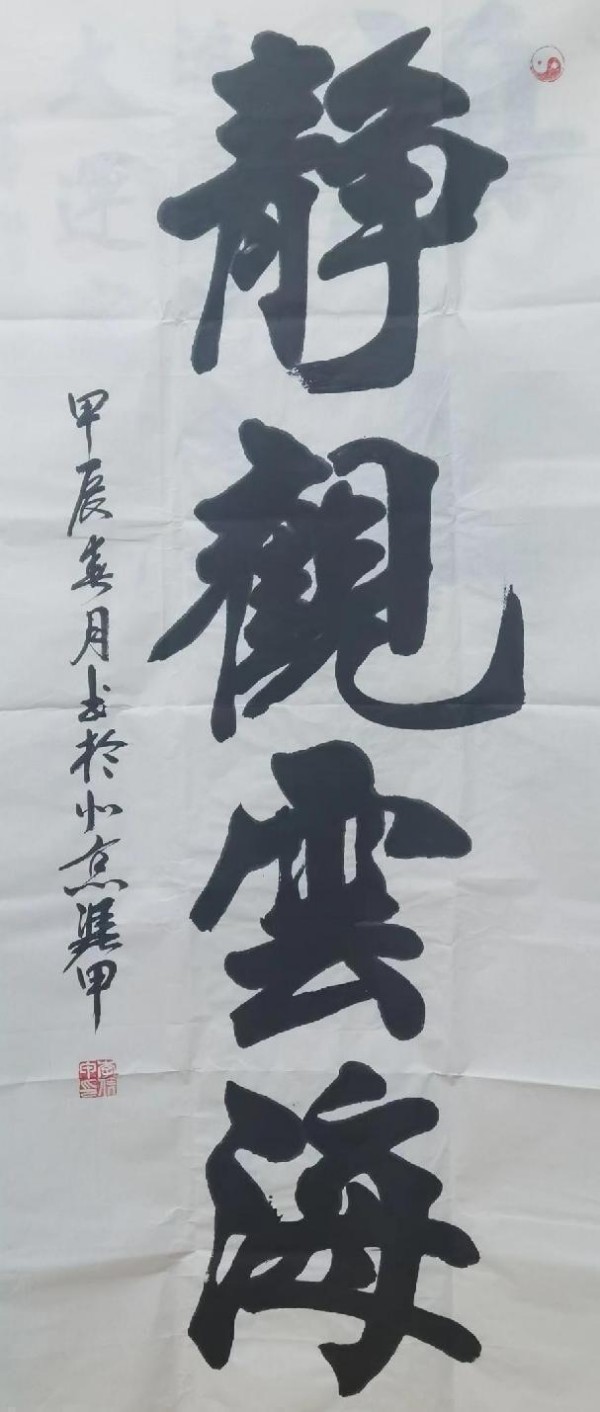 靜觀雲海
甲辰春月书於北京